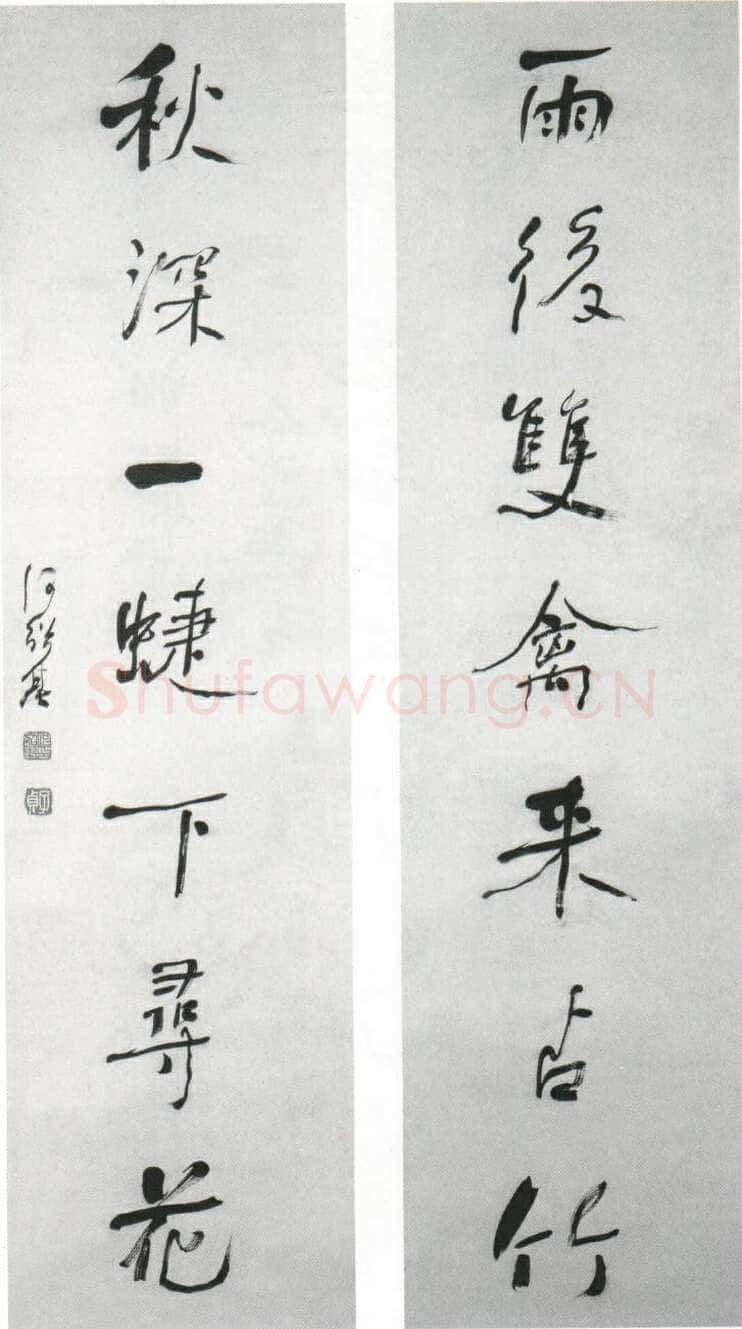 雨後雙禽来占竹
秋深一蜨下尋花
何紹基
Shufawang.CN